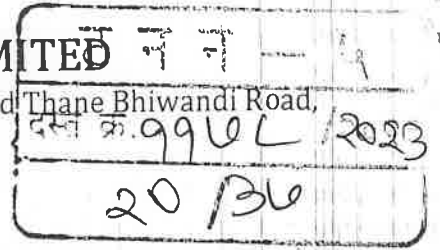 MITED ट न न -
d Thane Bhiwandi Road,
दस्त क्र. ११७८ /2023
20 /३७